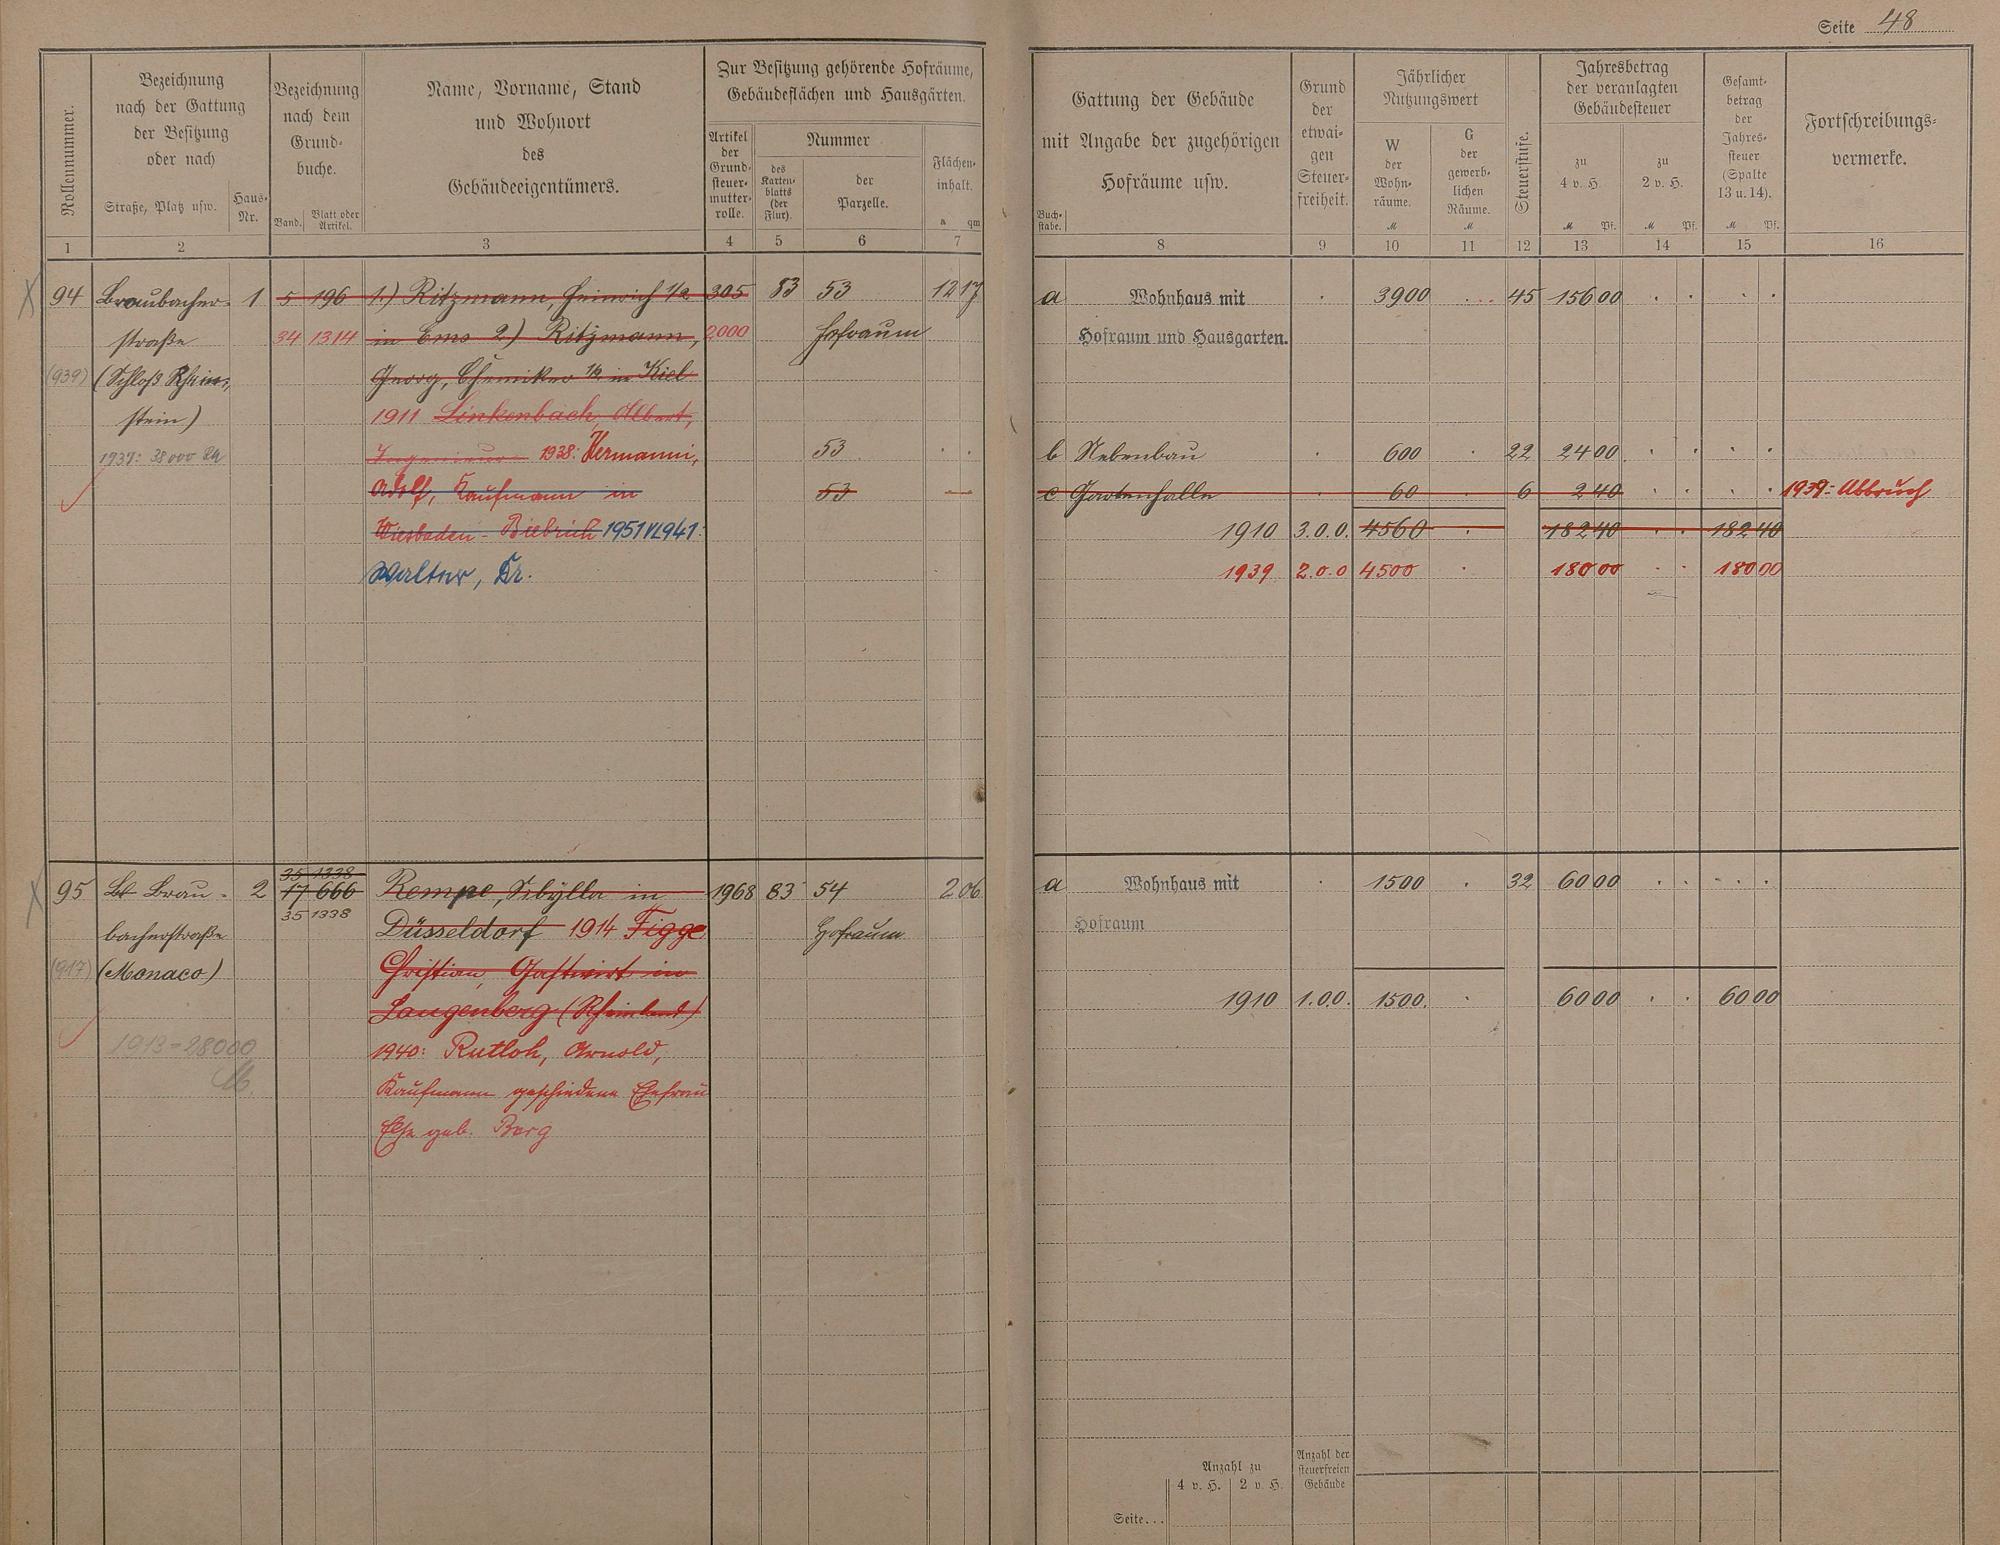 Seite 48
Rollennummer.
Bezeichnung
nach der Gattung
der Besitzung
oder nach
Straße, Platz usw.
Haus-
Nr.
Bezeichnung
nach dem
Grund-
buche.
Band.
Blatt oder
Artikel.
Name, Vorname, Stand
und Wohnort
des
Gebäudeeigentümers.
Zur Besitzung gehörende Hofräume,
Gebäudeflächen und Hausgärten.
Artikel
der
Grund-
steuer-
mutter-
rolle.
Nummer
des
Karten-
blatts
(der
Flur).
der
Parzelle.
Flächen-
inhalt.
a qm
Buch-
stabe.
Gattung der Gebäude
mit Angabe der zugehörigen
Hofräume usw.
Grund
der
etwai-
gen
Steuer-
freiheit.
Jährlicher
Nutzungswert
W
der
Wohn-
räume.
M
G
der
gewerb-
lichen
Räume.
M
Steuerstufe.
Jahresbetrag
der veranlagten
Gebäudesteuer
zu
4 v. H.
M Pf.
zu
2 v. H.
M Pf.
Gesamt-
betrag
der
Jahres-
steuer
(Spalte
13 u. 14).
M Pf.
Fortschreibungs-
vermerke.
1 2 3 4 5 6 7 8 9 10 11 12 13 14 15 16
94 Braubacher- 1 5 196 1.) Ritzmann, Heinrich 1/2 305 83 53 12 17 a Wohnhaus mit 3900 45 156 00
straße 34 1314 in Ems 2) Ritzmann, 2000 Hofraum Hofraum und Hausgarten.
(939) (Schloß Rhein-, Georg, Chemiker 1/2 in Kiel
stein) 1911 Linkenbach, Albert,
1937: 38000 RM Ingenieur 1938: Hermanni, 53 b Nebenbau 600 22 24 00
Adolf, Kaufmann in 53 — c Gartenhalle 60 6 2 40 1939: Abbruch
Wiesbaden-Biebrich 1951 1910 3.0.0. 4560 182 40 182 40
Walter, Dr. 1939 2.0.0 4500 180 00 180 00
35 1338
95 Brau- 2 17 666 Rempe, Sibylla in 1968 83 54 2 06 a Wohnhaus mit 1500 32 60 00
35 1338
bacherstraße Düsseldorf 1914 Figge Hofraum Hofraum
(917) (Monaco) Christian, Gastwirt in
Langenberg (Rheinland) 1910 1.0.0. 1500. 60 00 60 00
1913=28000 M. 1940: Rutloh, Arnold,
Kaufmann geschiedene Ehefrau
Else geb. Berg
Anzahl zu
4 v. H. 2 v. H.
Anzahl der
steuerfreien
Gebäude
Seite...